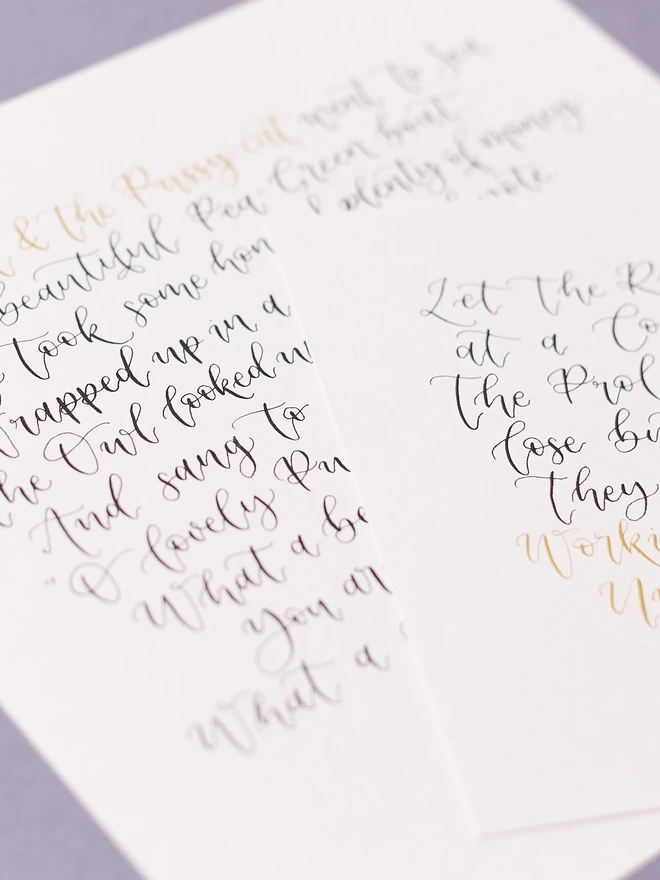 & the Pussy-cat went to sea
beautiful Pea Green boat
took some hon plenty of money
rapped up in a note
he Owl looked u
And sang to
"O lovely Pu
What a be
you ar
What a
Let the R
at a Co
The Prol
lose bi
They
Worki
Un